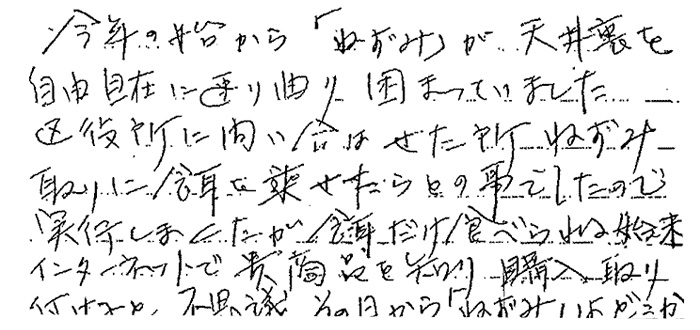 今年の始から「ねずみ」が天井裏を
自由自在に走り廻り困まっていました
区役所に問い合はせた所ねずみ
取りに餌を乗せたらとの事でしたので
実行しましたが餌だけ食べられる始末
インターネットで貴商品を知り購入取り
付けると、不思議その日から「ねずみ」はどこか